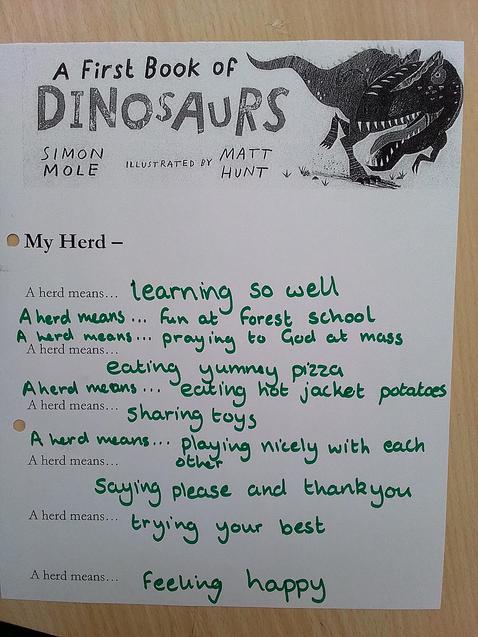 A First Book of
DINOSAURS
SIMON MOLE ILLUSTRATED BY MATT HUNT
My Herd –
A herd means... learning so well
A herd means... fun at forest school
A herd means... praying to God at mass
A herd means...
eating yummy pizza
A herd means... eating hot jacket potatoes
A herd means... sharing toys
A herd means... playing nicely with each
other
A herd means...
Saying please and thankyou
A herd means... trying your best
A herd means... feeling happy